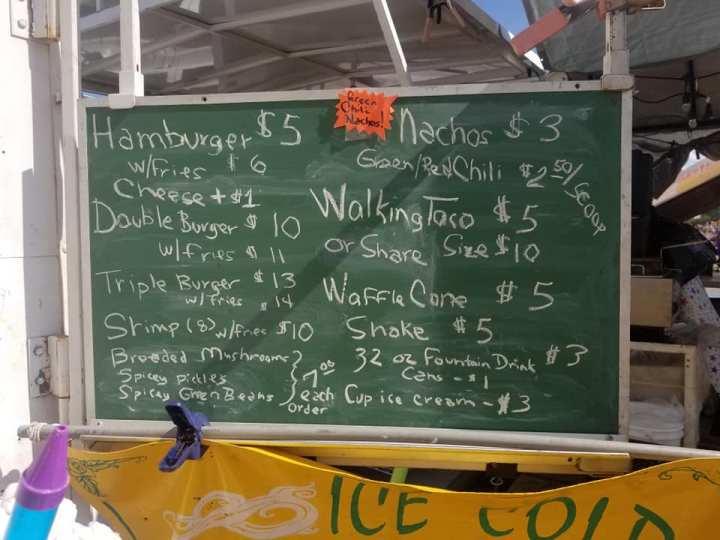 Green
Chili
Nachos!
Hamburger $5
w/fries $6
Cheese + $1
Double Burger $10
w/fries $11
Triple Burger $13
w/fries $14
Shrimp (8) w/fries $10
Breaded Mushrooms
Spicey pickles
Spicey Green Beans
7.00
each
order
Nachos $3
Green/Red Chili $2.50/Scoop
Walking Taco $5
or Share Size $10
Waffle Cone $5
Shake $5
32 oz Fountain Drink $3
Cans - $1
Cup ice cream - $3
ICE COLD